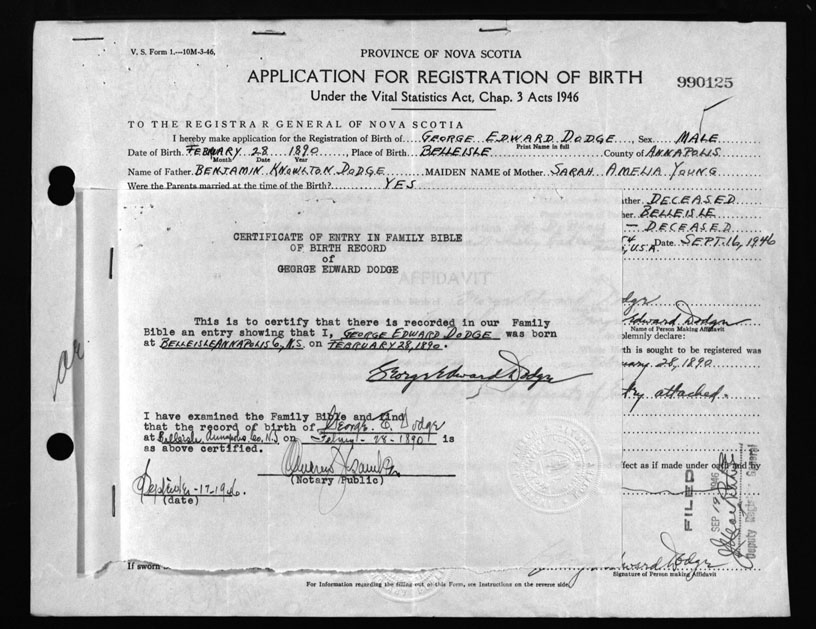 V. S. Form 1.—10M-3-46.
PROVINCE OF NOVA SCOTIA
APPLICATION FOR REGISTRATION OF BIRTH
990125
Under the Vital Statistics Act, Chap. 3 Acts 1946
TO THE REGISTRAR GENERAL OF NOVA SCOTIA
I hereby make application for the Registration of Birth of GEORGE EDWARD DODGE, Sex MALE
Print Name in full
Date of Birth FEBRUARY 28 1890, Place of Birth BELLEISLE County of ANNAPOLIS
Month Date Year
Name of Father BENJAMIN KNOWLTON DODGE MAIDEN NAME of Mother SARAH AMELIA YOUNG
Were the Parents married at the time of the Birth? YES
ather DECEASED
her BELLEISLE
— DECEASED
U.S.A. Date SEPT. 16, 1946
CERTIFICATE OF ENTRY IN FAMILY BIBLE
OF BIRTH RECORD
of
GEORGE EDWARD DODGE
AFFIDAVIT
This is to certify that there is recorded in our Family
Bible an entry showing that I, GEORGE EDWARD DODGE was born
at BELLEISLE ANNAPOLIS Co, N.S. on FEBRUARY 28, 1890.
George Edward Dodge
dge
Edward Dodge
Name of Person Making Affidavit
olemnly declare:
Birth is sought to be registered was
uary 28, 1890
try attached.
I have examined the Family Bible and find
that the record of birth of George E. Dodge
at Belleisle Annapolis Co, N.S on Feby - 28 - 1890 is
as above certified.
(Notary Public)
September - 17 - 1946.
(date)
ffect as if made under oath and by
FILED
SEP 1946
Deputy Registrar General
If sworn
Edward Dodge
Signature of Person making Affidavit
For Information regarding the filling out of this Form, see Instructions on the reverse side.